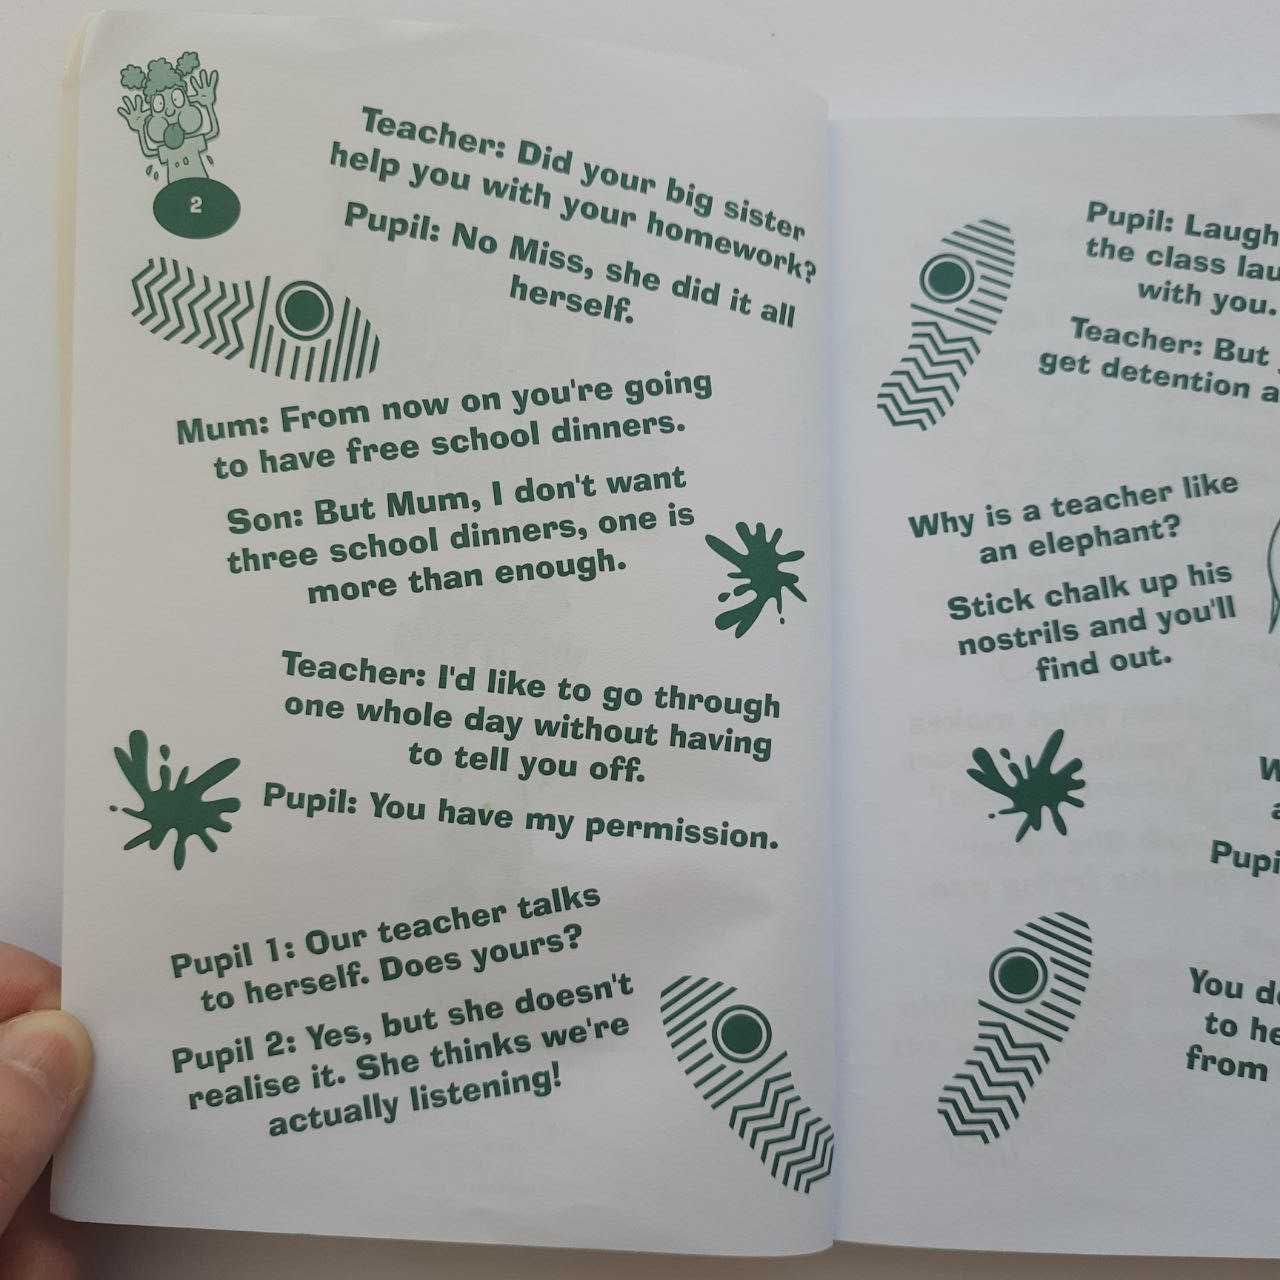 2
Teacher: Did your big sister
help you with your homework?
Pupil: No Miss, she did it all
herself.
Mum: From now on you're going
to have free school dinners.
Son: But Mum, I don't want
three school dinners, one is
more than enough.
Teacher: I'd like to go through
one whole day without having
to tell you off.
Pupil: You have my permission.
Pupil 1: Our teacher talks
to herself. Does yours?
Pupil 2: Yes, but she doesn't
realise it. She thinks we're
actually listening!
Pupil: Laugh
the class
with you.
Teacher: But
get detention
Why is a teacher like
an elephant?
Stick chalk up his
nostrils and you'll
find out.
You
to
from